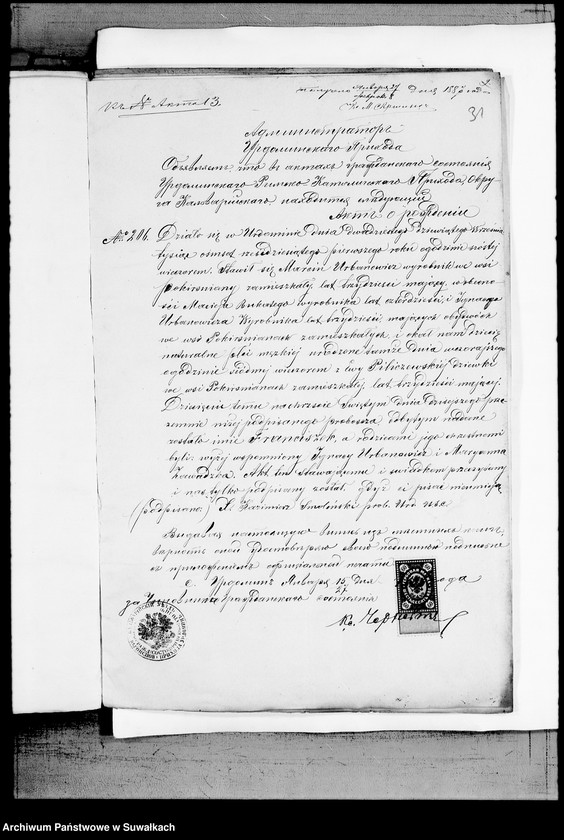 Къ № Акта 13.
31
Администраторъ
Урдоминскаго Прихода
Объявляетъ, что въ актахъ гражданскаго состоянія
Урдоминскаго Римско Католическаго Прихода, Окру
га Кальварійскаго находится слѣдующій
Актъ о рожденіи
№ 206. Działo się w Urdominie dnia dwudziestego dziewiątego Września
tysiąc osmset sześdziesiątego pierwszego roku o godzinie szóstej
wieczorem. Stawił się Marcin Urbanowicz wyrobnik we wsi
Pokirsniany zamieszkały lat trzydzieści mający, w obecno
ści Macieja wyrobnika lat czterdzieści, i Ignacego
Urbanowicza Wyrobnika lat trzydzieści mających obydwóch
we wsi Pokirsnianach zamieszkałych, okazał nam dziecię
naturalne płci męzkiej urodzone tamże dnia wczorajszego
o godzinie siódmej wieczorem z Ewy Piliczewskiej dziewki
we wsi Pokirsnianach zamieszkałej lat trzydzieści mającej.
Dziecięciu temu na chrzcie Świętym dnia dzisiejszego prze
zemnie niżej podpisanego proboszcza odbytym nadane
zostało imie Franciszek, a rodzicami jego chrzestnemi
byli: wyżej wspomniony Ignacy Urbanowicz i Maryanna
Zawadzka. Akt ten stawającemu i świadkom przeczytany
i nas tylko podpisany został. Gdyż ci pisać nieumieją
(podpisano) X. Kazimierz Smoleński prob. Urd.
съ приложеніемъ оффиціальной печати
с. Урдоминъ Января 15/27 дня года
за Чиновника Гражданскаго состоянія
Archiwum Państwowe w Suwałkach